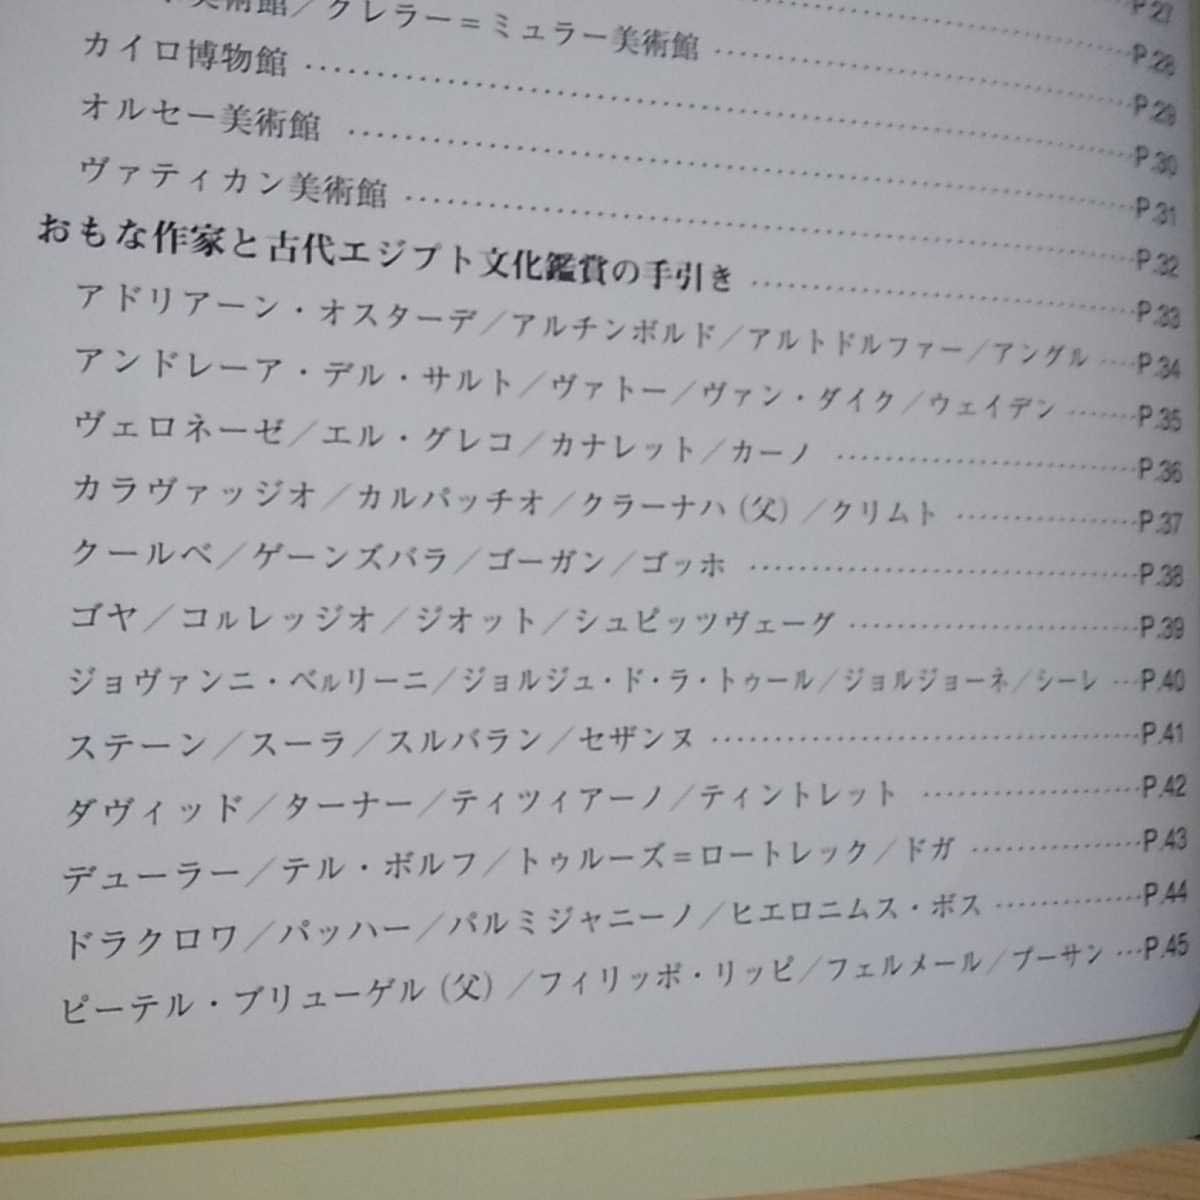 P.27
P.28
美術館／クレラー＝ミュラー美術館 ……P.29
カイロ博物館 ……P.30
オルセー美術館 ……P.31
ヴァティカン美術館 ……P.32
おもな作家と古代エジプト文化鑑賞の手引き ……P.33
アドリアーン・オスターデ／アルチンボルド／アルトドルファー／アングル ……P.34
アンドレーア・デル・サルト／ヴァトー／ヴァン・ダイク／ウェイデン ……P.35
ヴェロネーゼ／エル・グレコ／カナレット／カーノ ……P.36
カラヴァッジオ／カルパッチオ／クラーナハ（父）／クリムト ……P.37
クールベ／ゲーンズバラ／ゴーガン／ゴッホ ……P.38
ゴヤ／コルレッジオ／ジオット／シュピッツヴェーグ ……P.39
ジョヴァンニ・ベルリーニ／ジョルジュ・ド・ラ・トゥール／ジョルジョーネ／シーレ …P.40
ステーン／スーラ／スルバラン／セザンヌ ……P.41
ダヴィッド／ターナー／ティツィアーノ／ティントレット ……P.42
デューラー／テル・ボルフ／トゥルーズ＝ロートレック／ドガ ……P.43
ドラクロワ／パッハー／パルミジャニーノ／ヒエロニムス・ボス ……P.44
ピーテル・ブリューゲル（父）／フィリッポ・リッピ／フェルメール／プーサン …P.45